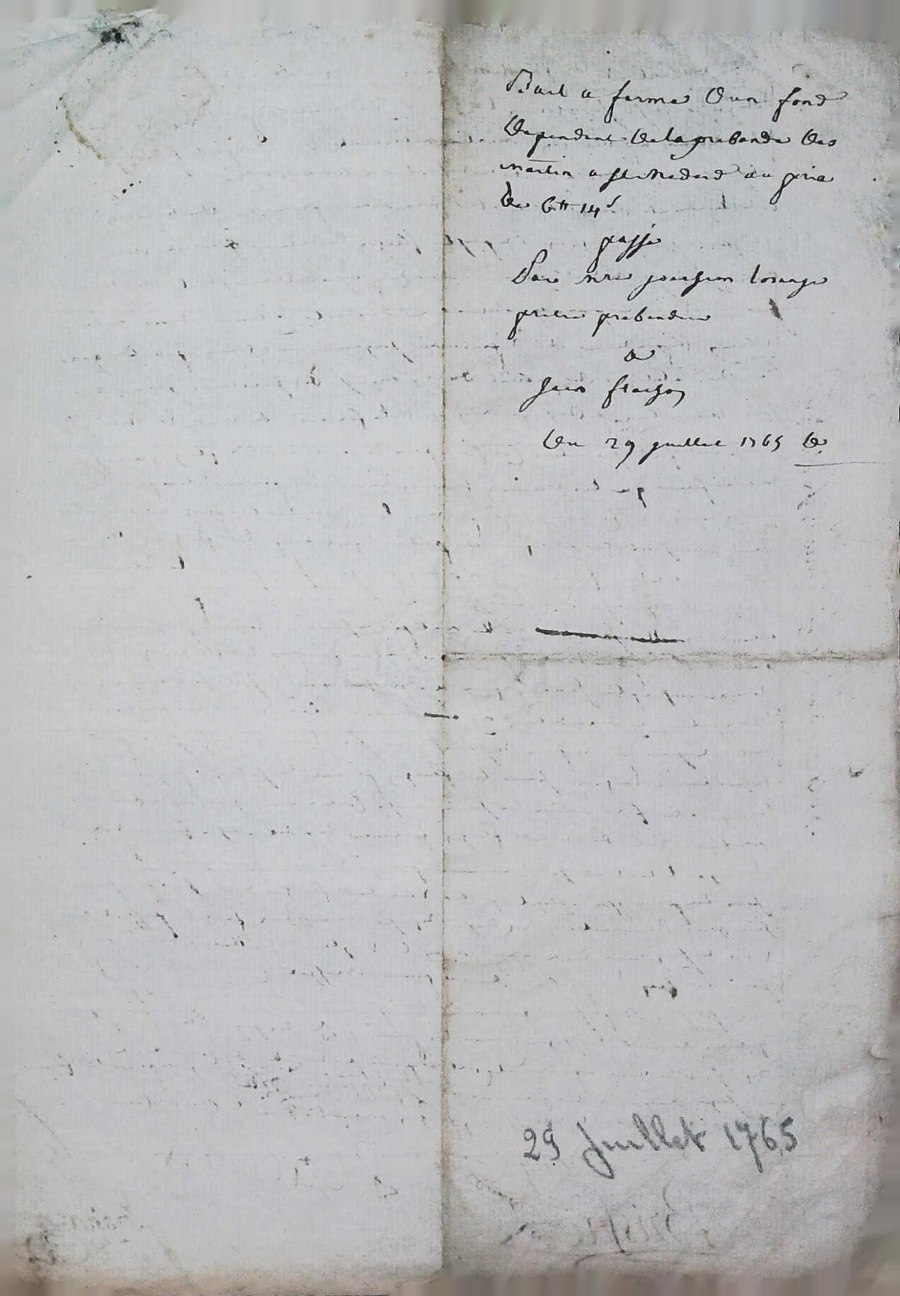 Bail a ferme dun fond
dependent de la prebande des
martin a St Medard au prix
de 6tt 14s
passé
Par mre joachim
pretre prebandier
a
jean
du 29 juillet 1765
29 Juillet 1765